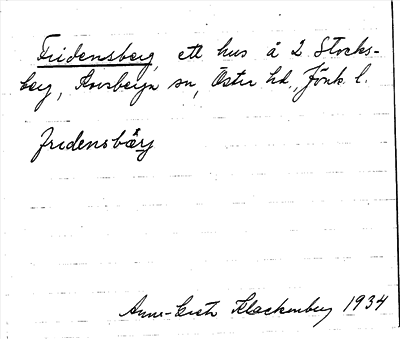 Fridensberg, ett hus å 2 Stocks-
berg, Korsberga sn, Östra hd., Jönk. l.
fridensbærj
Anna-Lisa Klackenberg 1934